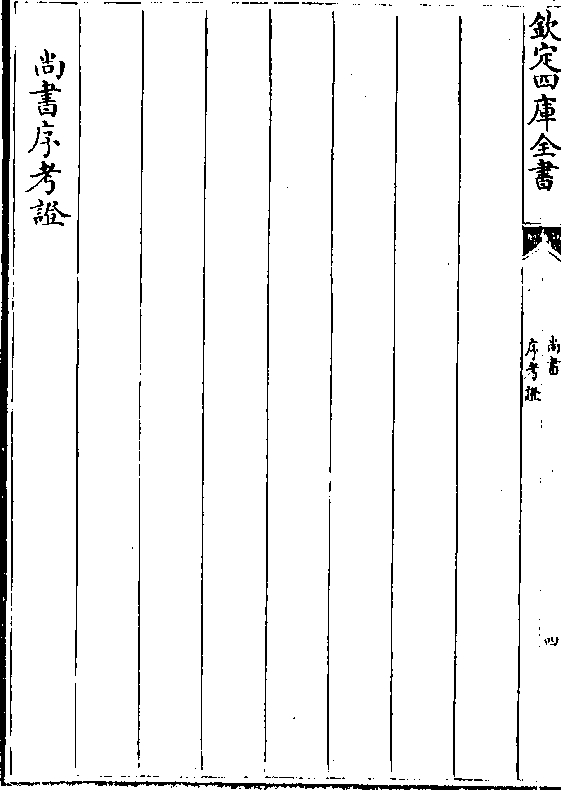 欽定四庫全書
尚書
序考證
四
尚書序考證